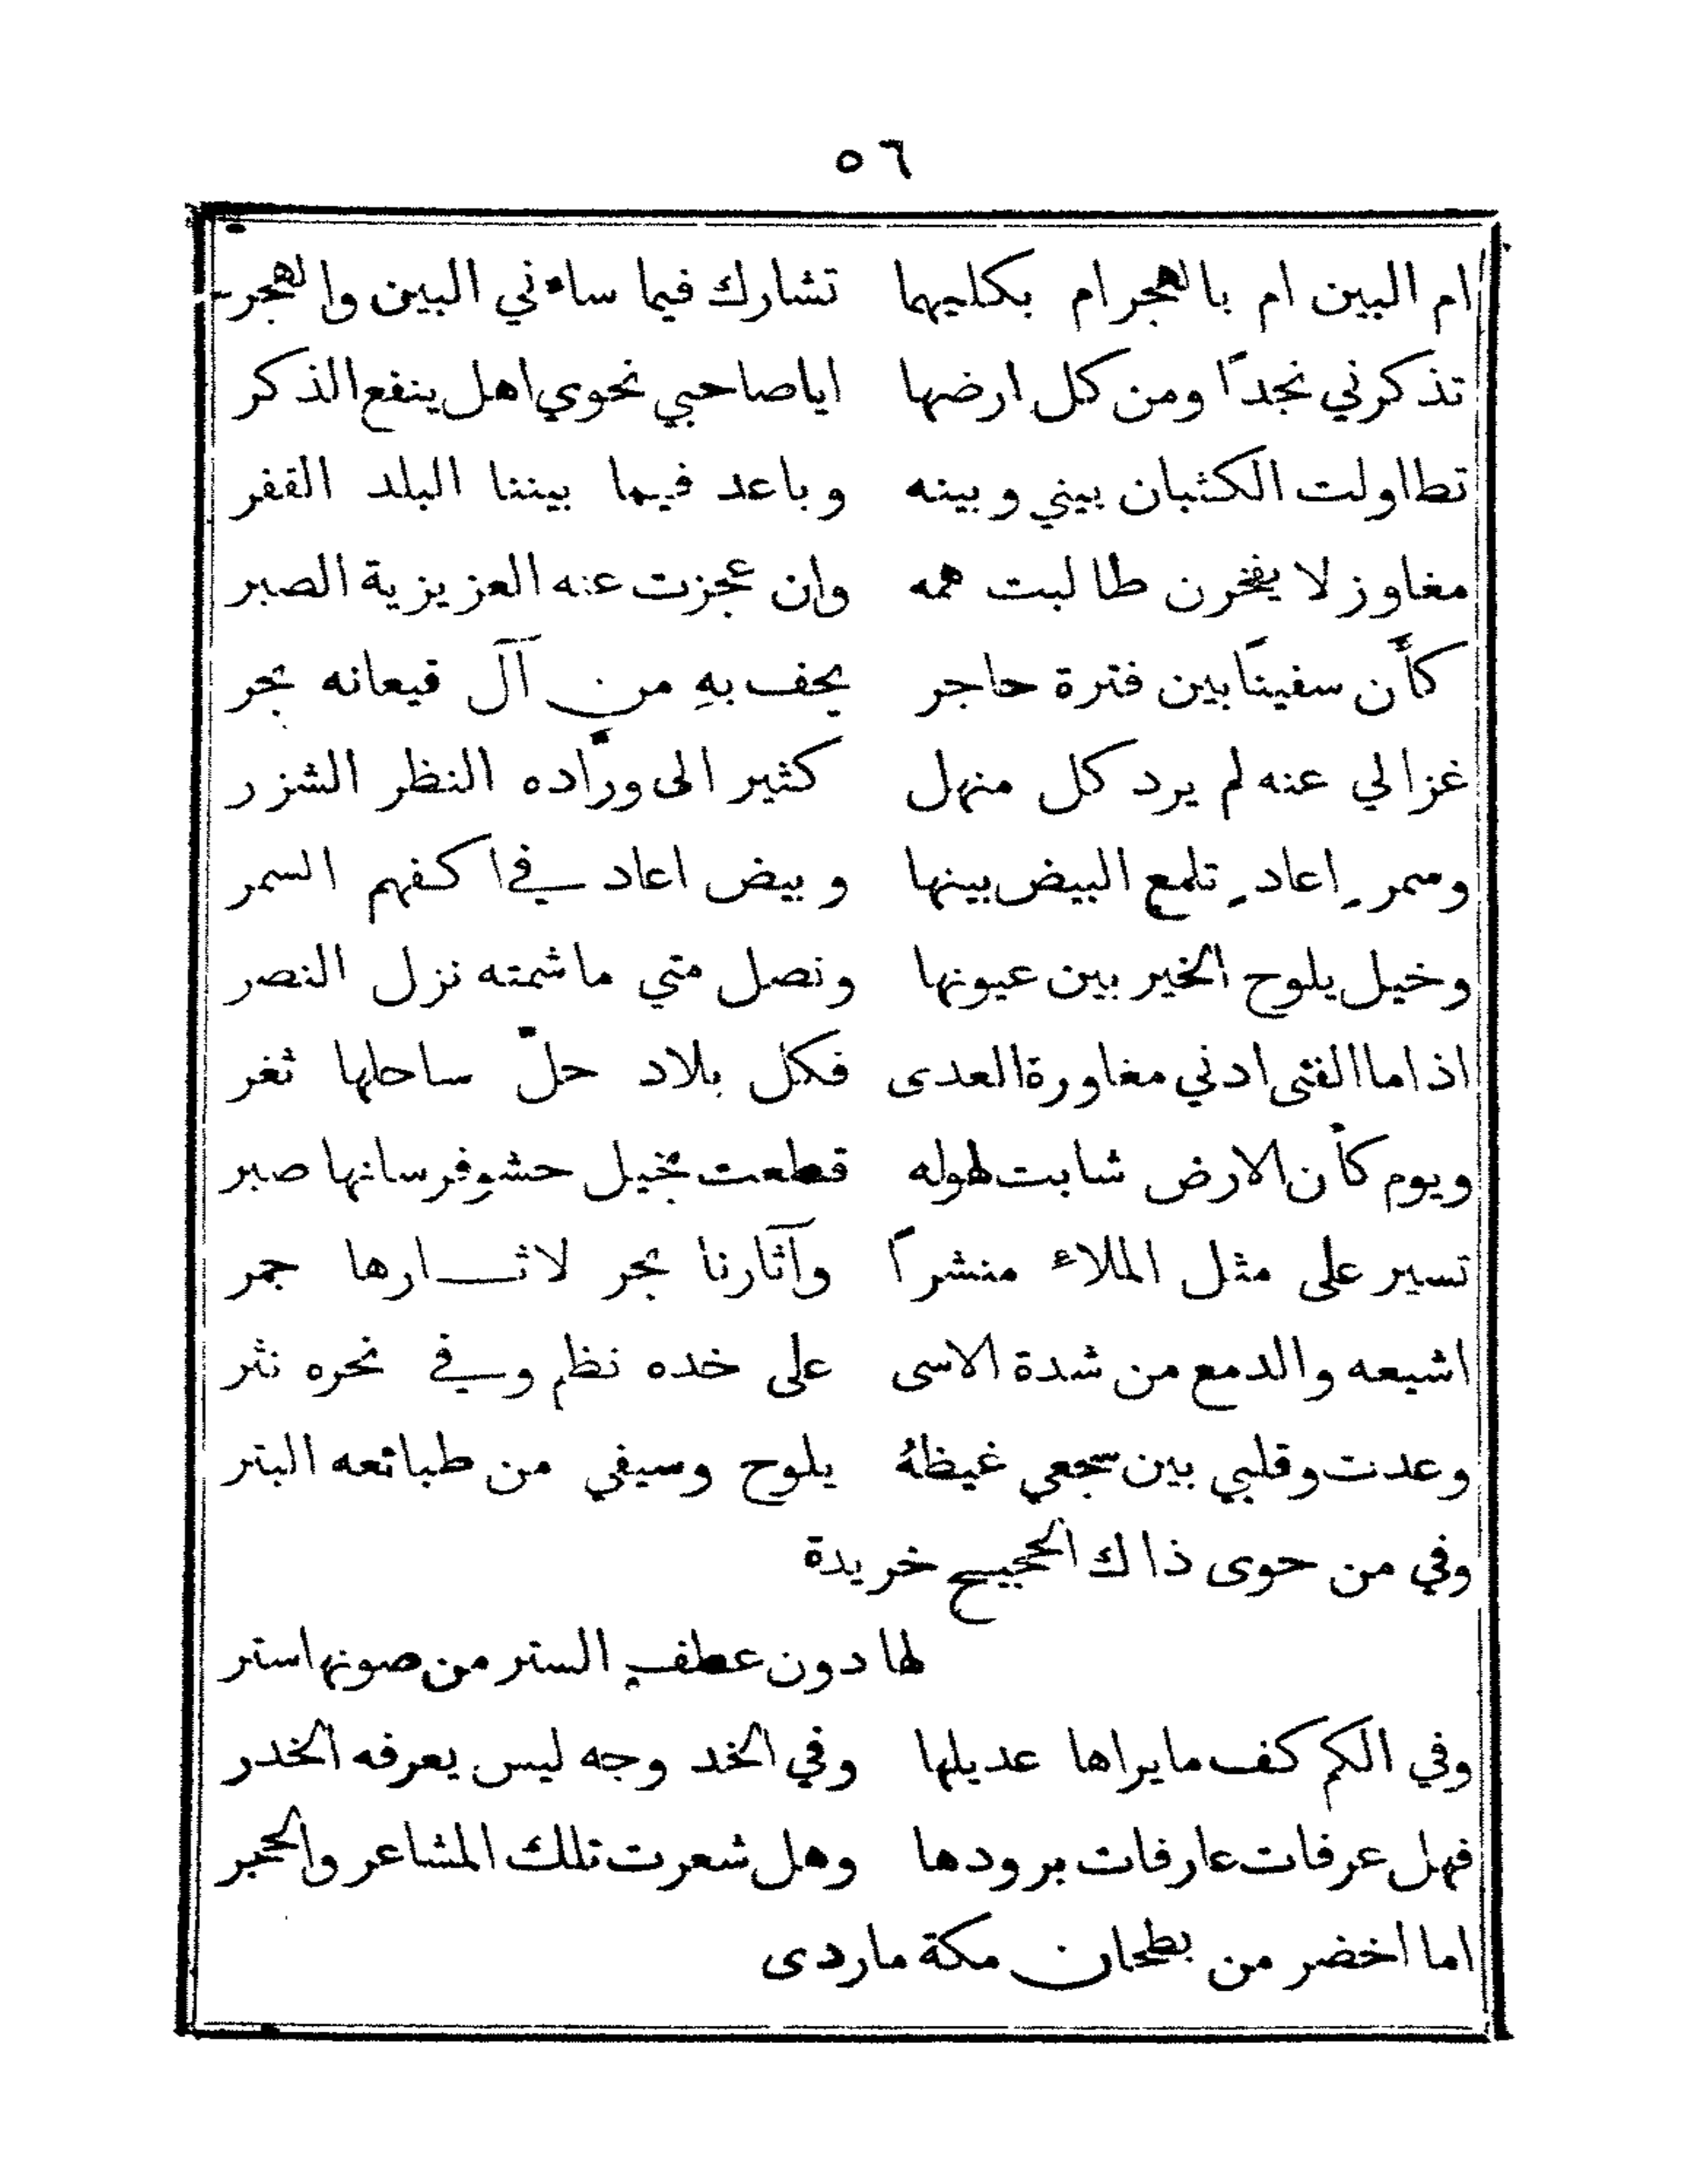 ٥٦
ام البين ام بالهجر ام بكليهما تشارك فيما ساءني البين والهجر
تذكرني نجداً ومن كل ارضها اياصاحبي نحوي اهل ينفع الذكر
تطاولت الكثبان بيني وبينه وباعد فيما بيننا البلد القفر
مغاوز لا يفخرن طالبت همه وان عجزت عنه العزيزية الصبر
كأَن سفيناً بين فترة حاجر يحف بهِ من آل قيعانه بحر
غزالي عنه لم يرد كل منهل كثير الى ورّاده النظر الشزر
وسمرٍ اعادٍ تلمع البيض بينها وبيض اعاد في اكفهم السمر
وخيل يلوح الخير بين عيونها ونصل متي ماشمته نزل النصر
اذا ما الفتى ادني مغاورة العدى فكل بلاد حلّ ساحلها ثغر
ويوم كأن الارض شابت لهوله قطعت بخيل حشو فرسانها صبر
تسير على مثل الملاء منشراً وآثارنا بحر لاثـارها جمر
اشبعه والدمع من شدة الاسى على خده نظم وفي نحره نثر
وعدت وقلبي بين سجعي غيظهُ يلوح وسيفي من طبائعه البتر
وفي من حوى ذاك الحجيج خريدة
لها دون عطفِ الستر من صونها ستر
وفي الكم كف مايراها عديلها وفي الخد وجه ليس يعرفه الخدر
فهل عرفات عارفات برودها وهل شعرت تلك المشاعر والحجر
اما اخضر من بطحان مكة ماردى